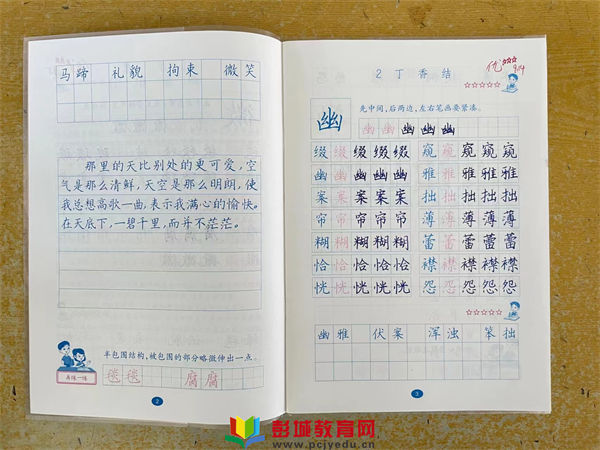 马蹄 礼貌 拘束 微笑
那里的天比别处的更可爱，空
气是那么清鲜，天空是那么明朗，使
我总想高歌一曲，表示我满心的愉快。
在天底下，一碧千里，而并不茫茫。
半包围结构，被包围的部分略微伸出一点。
再练一练
毯 毯 腐 腐
2
优 9.14
2 丁香结
幽
先中间，后两边，左右笔画要紧凑。
幽 幽 幽 幽 幽
缀 缀 缀 缀 窥 窥 窥 窥
幽 幽 幽 幽 雅 雅 雅 雅
案 案 案 案 拙 拙 拙 拙
帘 帘 帘 帘 薄 薄 薄 薄
糊 糊 糊 糊 蕾 蕾 蕾 蕾
恰 恰 恰 恰 襟 襟 襟 襟
恍 恍 恍 恍 怨 怨 怨 怨
幽雅 伏案 浑浊 笨拙
3
彭城教育网
www.pcjyedu.cn